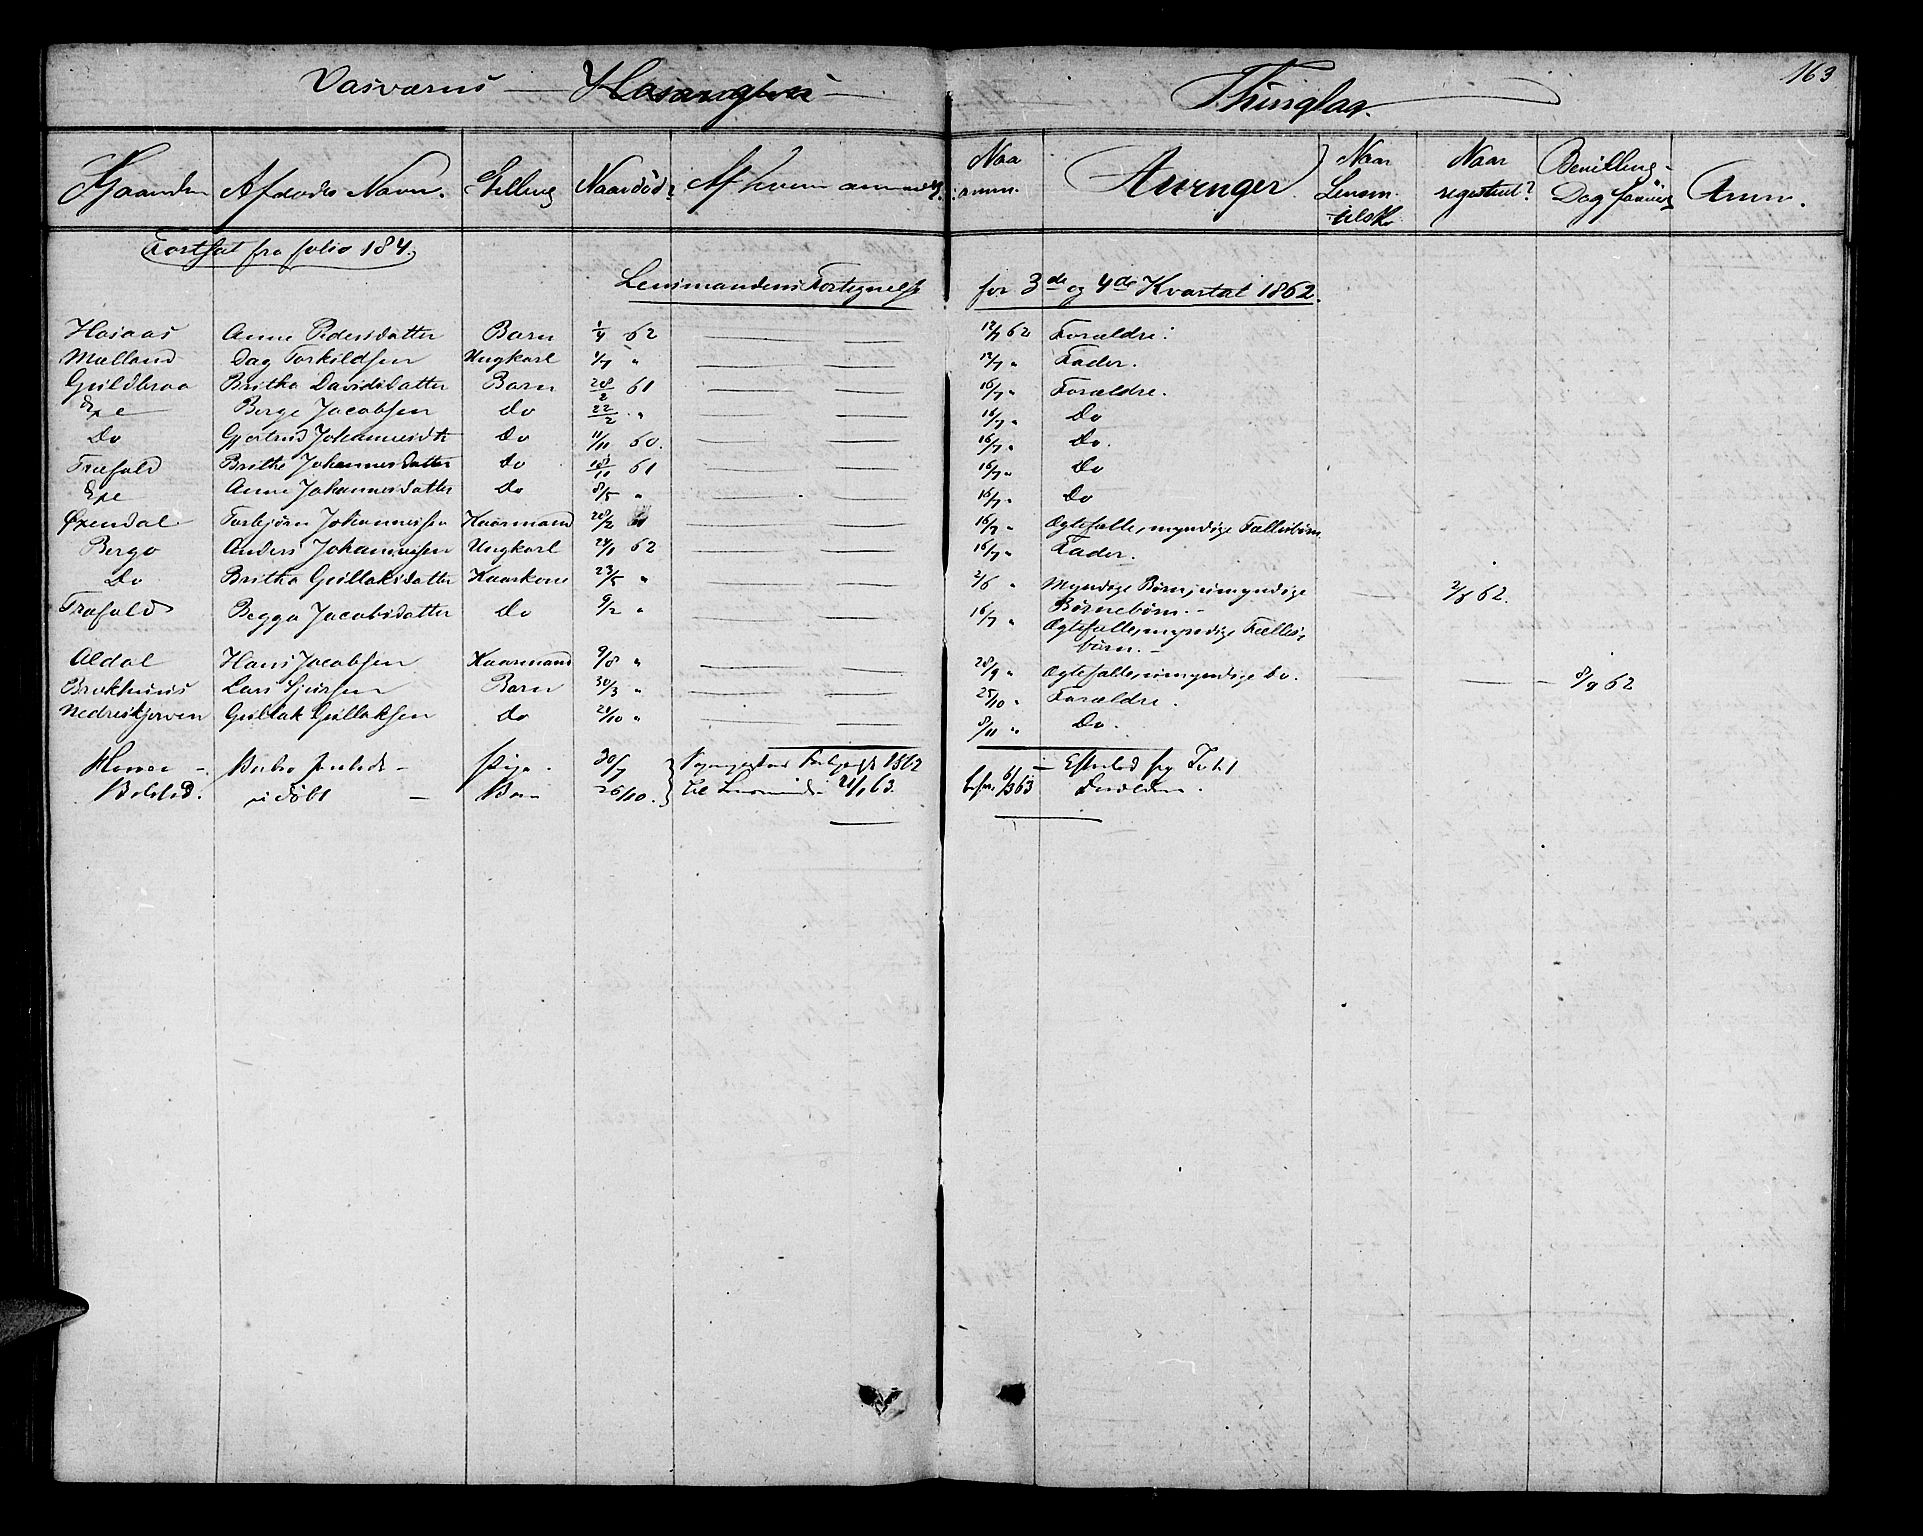 163
Thinglag.
Gaarden Afdødes Navn. Stilling Naar død? Af hvem anmeldt. Naar anm. Arvinger Naar Lensm. tilsk. Naar registreret? Bevilling- Dag Anm.
Fortsat fra folio 184.
Lensmandens Fortegnelse for 3de og 4de Kvartal 1862.
Hasaas Anne Pedersdatter Barn 1/4 62 — — 12/7 62 Forældre.
Mælland Dag Torkildsen Ungkarl 1/7 " — — 12/7 " Fader.
Guldbraa Britha Davidsdatter Barn 28/2 61 — — 16/7 " Forældre.
Exe Børge Jacobsen Do 22/2 " — — 16/7 " Do
Do Gjertrud Johannesdtr Do 11/11 60. — — 16/7 " Do.
Træfald Britha Johannesdatter Do 61 — — 16/7 " Do
Exe Anne Johannesdatter Do 8/5 " — — 16/7 " Do
Øxendal Torbjørn Johannessen Kaarmand 28/2 — — 16/7 " Ægtefælle, myndige Fællesbørn
Bergo Anders Johannessen Ungkarl 24/1 62 — — 16/7 " Fader.
Do Britha Gullaksdatter Kaarkone 23/5 " — — 2/6 " Myndige Børn, umyndige Børnebørn. — — 2/6 62.
Træfald Begga Jacobsdatter Do 9/2 " — — 16/7 " Ægtefælle, myndige Fællesbørn. —
Aldal Hans Jacobsen Kaarmand 9/8 " — — 28/9 " Ægtefælle, umyndige Do. — — — 8/9 62
Brækhuus Lars Sjursen Barn 30/3 " — — 25/10 " Forældre.
Nedreskjerven Gullak Gullaksen Do 24/10 " — — 8/11 " Do.
Pige. 30/7 1862 —
Bolstad. udøbt — Barn 26/10. til 21/1 63. 6/3 63 Forældre.